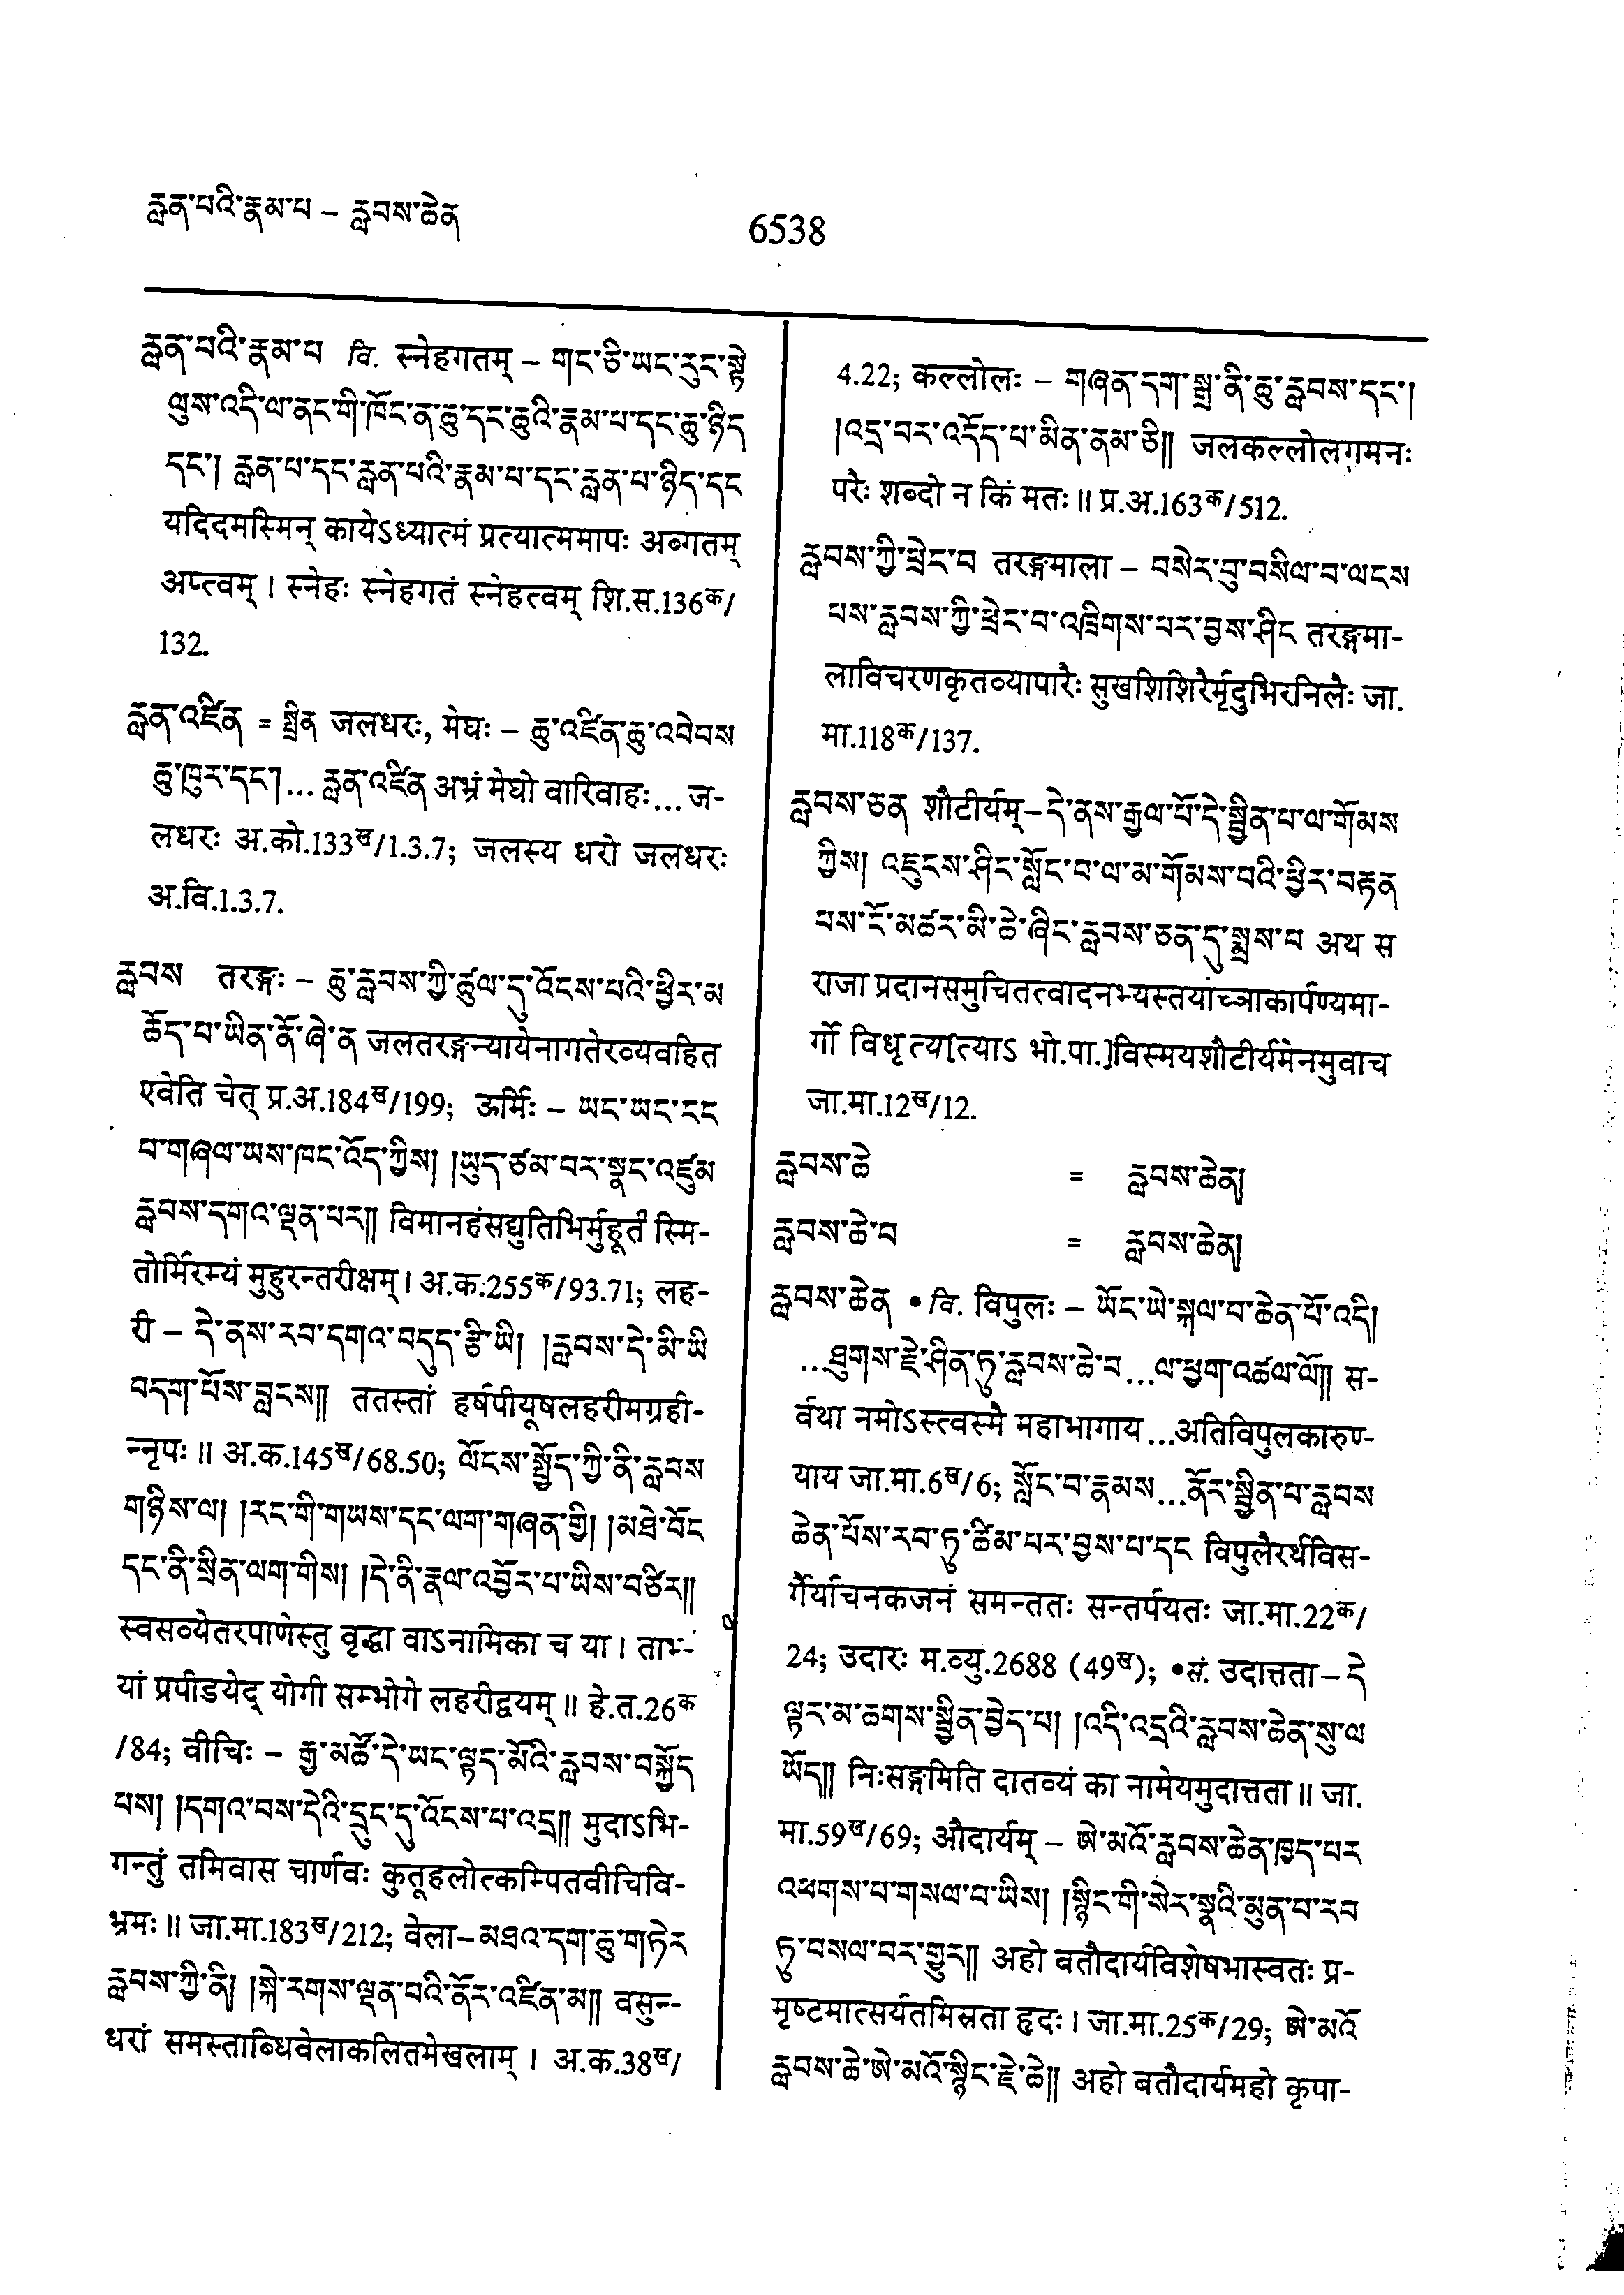 རླན་པའི་རྣམ་པ – རླབས་ཆེན
6538
རླན་པའི་རྣམ་པ वि. स्नेहगतम् – གང་ཅི་ཡང་རུང་སྟེ
ལུས་འདི་ལ་ནང་གི་ཁོང་ན་ཆུ་དང་ཆུའི་རྣམ་པ་དང་ཆུ་ཉིད
དང་། རླན་པ་དང་རླན་པའི་རྣམ་པ་དང་རླན་པ་ཉིད་དང
यदिदमस्मिन् कायेऽध्यात्मं प्रत्यात्ममापः अब्गतम्
अप्त्वम् । स्नेहः स्नेहगतं स्नेहत्वम् शि.स.136क/
132.
རླན་འཛིན = སྤྲིན जलधरः, मेघः – ཆུ་འཛིན་ཆུ་འབེབས
ཆུ་ཁུར་དང་། … རླན་འཛིན अभ्रं मेघो वारिवाहः … ज-
लधरः अ.को.133ख/1.3.7; जलस्य धरो जलधरः
अ.वि.1.3.7.
རླབས तरङ्गः – ཆུ་རླབས་ཀྱི་ཚུལ་དུ་འོངས་པའི་ཕྱིར་མ
ཆོད་པ་ཡིན་ནོ་ཞེ་ན जलतरङ्गन्यायेनागतेरव्यवहित
एवेति चेत् प्र.अ.184ख/199; ऊर्मिः – ཡང་ཡང་ངང
པ་གཞལ་ཡས་ཁང་འོད་ཀྱིས། །ཡུད་ཙམ་བར་སྣང་འཛུམ
རླབས་དགའ་ལྡན་པར༎ विमानहंसद्युतिभिर्मुहूर्तं स्मि-
तोर्मिरम्यं मुहुरन्तरीक्षम् । अ.क.255क/93.71; लह-
री – དེ་ནས་རབ་དགའ་བདུད་རྩི་ཡི། །རླབས་དེ་མི་ཡི
བདག་པོས་བླངས༎ ततस्तां हर्षपीयूषलहरीमग्रही-
न्नृपः ॥ अ.क.145ख/68.50; ལོངས་སྤྱོད་ཀྱི་ནི་རླབས
གཉིས་ལ། །རང་གི་གཡས་དང་ལག་གཞན་གྱི། །མཐེ་བོང
དང་ནི་སྲིན་ལག་གིས། །དེ་ནི་རྣལ་འབྱོར་པ་ཡིས་བཙིར༎
स्वसव्येतरपाणेस्तु वृद्धा वाऽनामिका च या । ताभ्-
यां प्रपीडयेद् योगी सम्भोगे लहरीद्वयम् ॥ हे.त.26क
/84; वीचिः – རྒྱ་མཚོ་དེ་ཡང་ལྟད་མོའི་རླབས་བསྐྱོད
པས། །དགའ་བས་དེའི་དྲུང་དུ་འོངས་པ་འདྲ༎ मुदाऽभि-
गन्तुं तमिवास चार्णवः कुतूहलोत्कम्पितवीचिवि-
भ्रमः ॥ जा.मा.183ख/212; वेला – མཐའ་དག་ཆུ་གཏེར
རླབས་ཀྱི་ནི། །སྐེ་རགས་ལྡན་པའི་ནོར་འཛིན་མ༎ वसुन्-
धरां समस्ताब्धिवेलाकलितमेखलाम् । अ.क.38ख/
4.22; कल्लोलः – གཞན་དག་སྒྲ་ནི་ཆུ་རླབས་དང་།
།འདྲ་བར་འདོད་པ་མིན་ནམ་ཅི༎ जलकल्लोलगमनः
परैः शब्दो न किं मतः ॥ प्र.अ.163क/512.
རླབས་ཀྱི་ཕྲེང་བ तरङ्गमाला – བསེར་བུ་བསིལ་བ་ལངས
པས་རླབས་ཀྱི་ཕྲེང་བ་འཁྲིགས་པར་བྱས་ཤིང तरङ्गमा-
लाविचरणकृतव्यापारैः सुखशिशिरैर्मृदुभिरनिलैः जा.
मा.118क/137.
རླབས་ཅན शौटीर्यम् – དེ་ནས་རྒྱལ་པོ་དེ་སྦྱིན་པ་ལ་གོམས
ཀྱིས། འཇུངས་ཤིང་སློང་བ་ལ་མ་གོམས་པའི་ཕྱིར་བརྟན
པས་ངོ་མཚར་མི་ཆེ་ཞིང་རླབས་ཅན་དུ་སྨྲས་པ अथ स
राजा प्रदानसमुचितत्वादनभ्यस्तयाच्ञाकार्पण्यमा-
र्गो विधृत्य[त्याऽ भो.पा.]विस्मयशौटीर्यमेनमुवाच
जा.मा.12ख/12.
རླབས་ཆེ = རླབས་ཆེན།
རླབས་ཆེ་བ = རླབས་ཆེན།
རླབས་ཆེན • वि. विपुलः – ཡོང་ཡེ་སྐལ་བ་ཆེན་པོ་འདི།
…ཐུགས་རྗེ་ཤིན་ཏུ་རླབས་ཆེ་བ…ལ་ཕྱག་འཚལ་ལོ༎ स-
र्वथा नमोऽस्त्वस्मै महाभागाय …अतिविपुलकारुण-
याय जा.मा.6ख/6; སློང་བ་རྣམས…ནོར་སྦྱིན་པ་རླབས
ཆེན་པོས་རབ་ཏུ་ཚིམ་པར་བྱས་པ་དང विपुलैरर्थविस-
र्गैर्याचनकजनं समन्ततः सन्तर्पयतः जा.मा.22क/
24; उदारः म.व्यु.2688 (49ख); •सं. उदात्तता – དེ
ལྟར་མ་ཆགས་སྦྱིན་བྱེད་པ། །འདི་འདྲའི་རླབས་ཆེན་སུ་ལ
ཡོད༎ निःसङ्गमिति दातव्यं का नामेयमुदात्तता ॥ जा.
मा.59ख/69; औदार्यम् – ཨེ་མའོ་རླབས་ཆེན་ཁྱད་པར
འཕགས་པ་གསལ་བ་ཡིས། །སྙིང་གི་སེར་སྣའི་མུན་པ་རབ
ཏུ་བསལ་བར་གྱུར༎ अहो बतौदार्यविशेषभास्वतः प्र-
मृष्टमात्सर्यतमिस्रता हृदः । जा.मा.25क/29; ཨེ་མའོ
རླབས་ཆེ་ཨེ་མའོ་སྙིང་རྗེ་ཆེ༎ अहो बतौदार्यमहो कृपा-